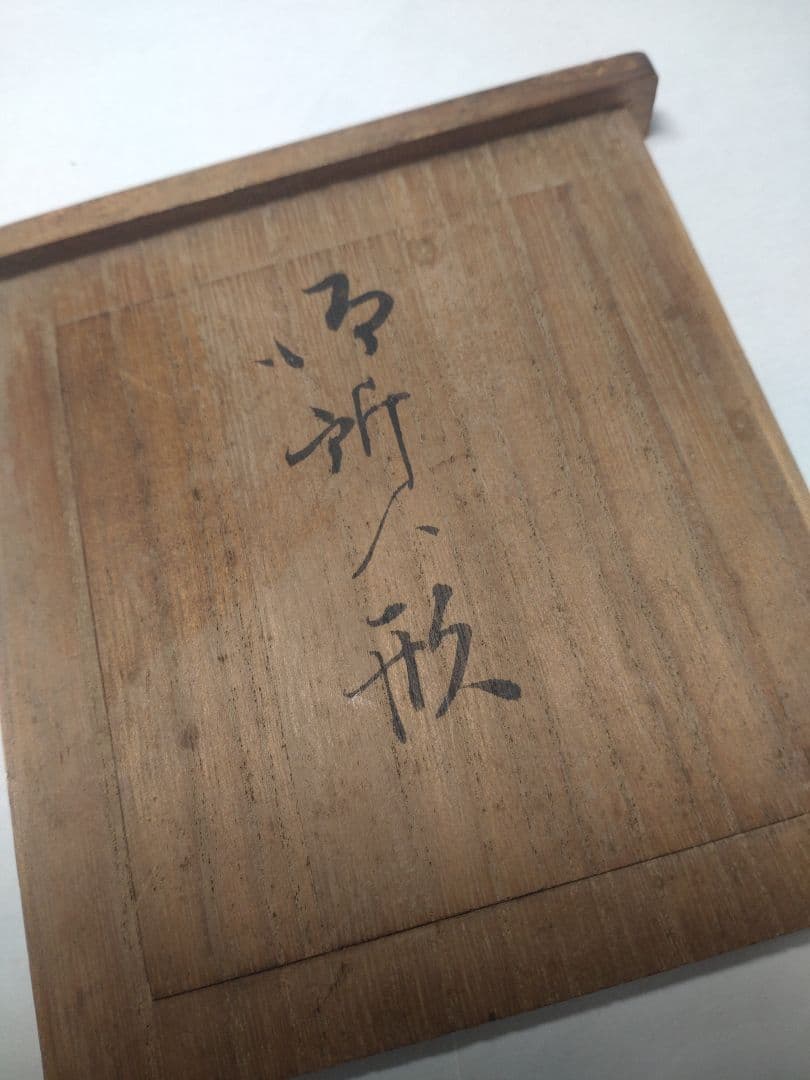 御所人形